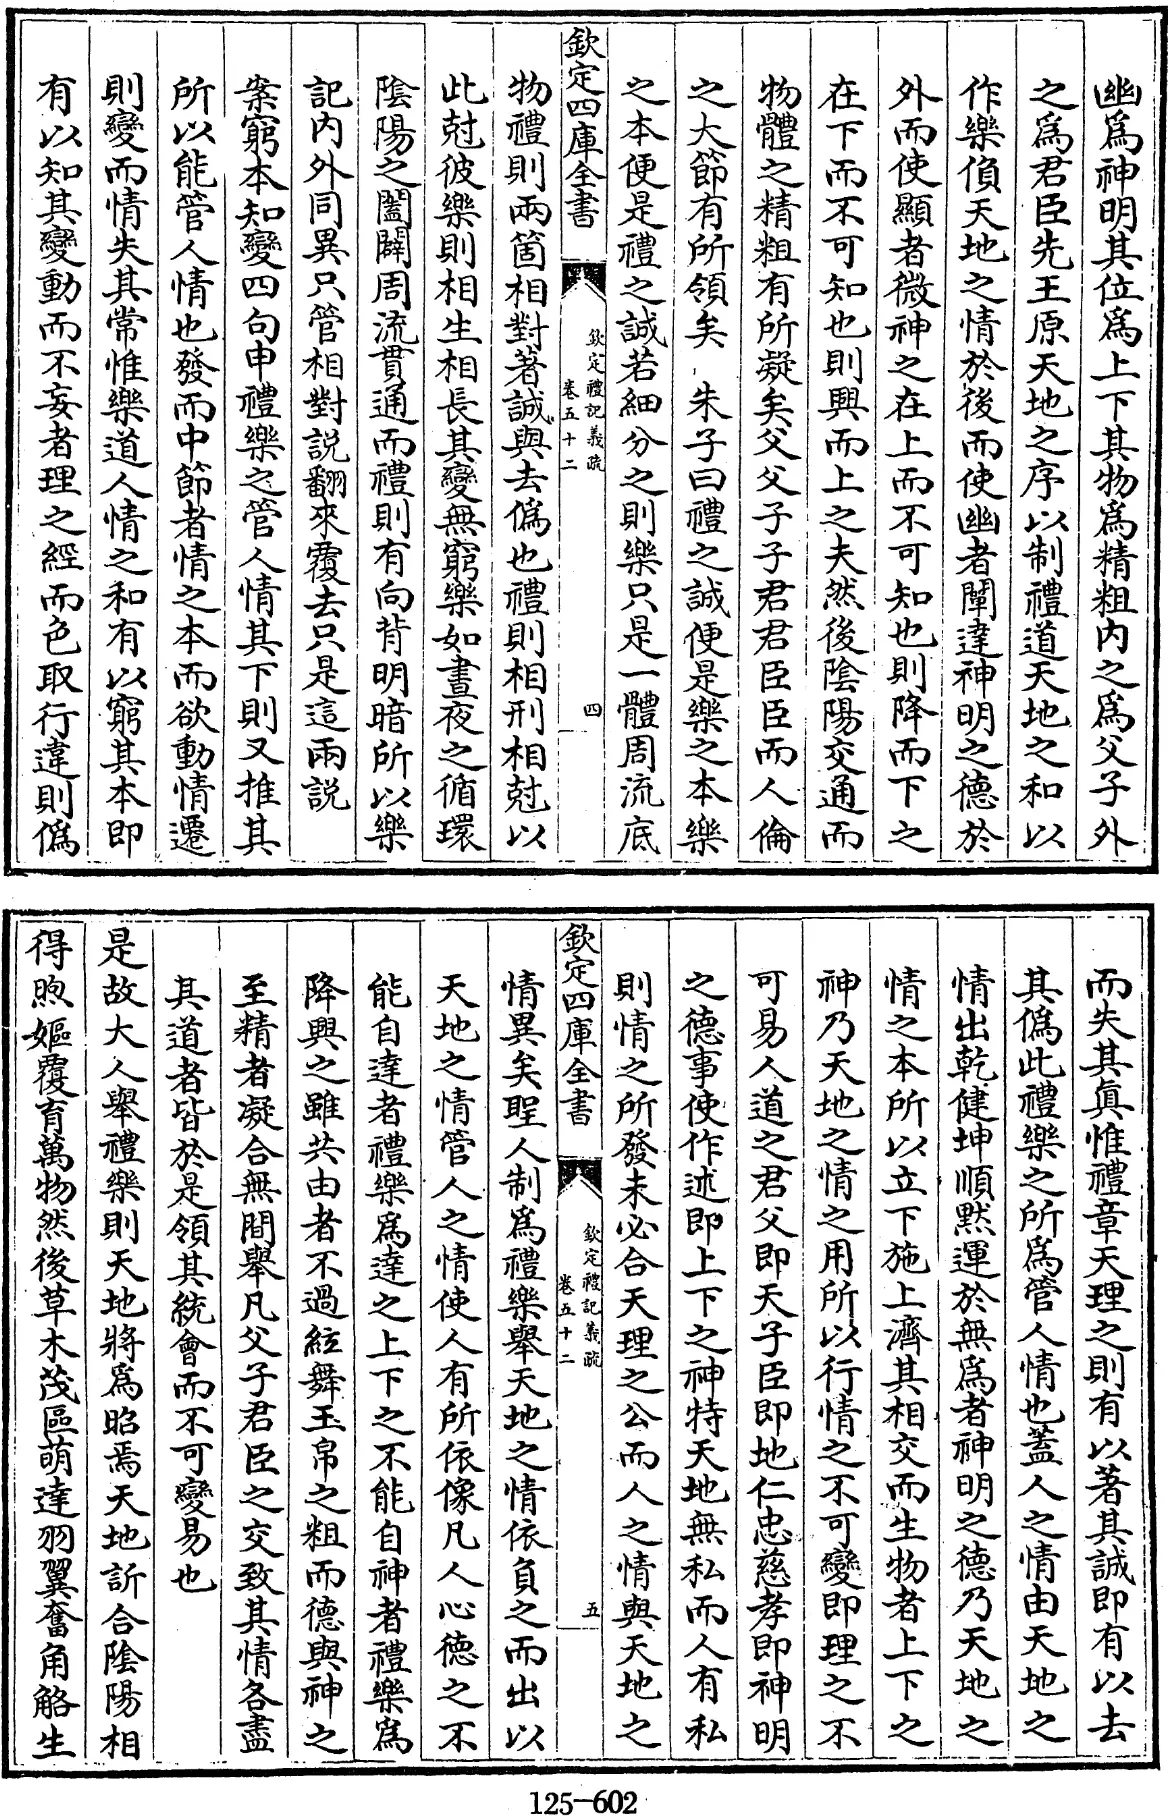 幽爲神明其位爲上下其物爲精粗内之爲父子外
之爲君臣先王原天地之序以制禮道天地之和以
作樂偩天地之情於後而使幽者闡達神明之德於
外而使顯者微神之在上而不可知也則降而下之
在下而不可知也則興而上之夫然後陰陽交通而
物體之精粗有所凝矣父父子子君君臣臣而人倫
之大節有所領矣 朱子曰禮之誠便是樂之本樂
之本便是禮之誠若細分之則樂只是一體周流底
欽定四庫全書
欽定禮記義疏
卷五十二
四
物禮則兩箇相對著誠與去僞也禮則相刑相尅以
此尅彼樂則相生相長其變無窮樂如晝夜之循環
陰陽之闔闢周流貫通而禮則有向背明暗所以樂
記内外同異只管相對說翻來覆去只是這兩說
案窮本知變四句申禮樂之管人情其下則又推其
所以能管人情也發而中節者情之本而欲動情遷
則變而情失其常惟樂道人情之和有以窮其本即
有以知其變動而不妄者理之經而色取行違則僞
而失其眞惟禮章天理之則有以著其誠即有以去
其僞此禮樂之所爲管人情也蓋人之情由天地之
情出乾健坤順黙運於無爲者神明之德乃天地之
情之本所以立下施上濟其相交而生物者上下之
神乃天地之情之用所以行情之不可變即理之不
可易人道之君父即天子臣即地仁忠慈孝即神明
之德事使作述即上下之神特天地無私而人有私
則情之所發未必合天理之公而人之情與天地之
欽定四庫全書
欽定禮記義疏
卷五十二
五
情異矣聖人制爲禮樂舉天地之情依負之而出以
天地之情管人之情使人有所依像凡人心德之不
能自達者禮樂爲達之上下之不能自神者禮樂爲
降興之雖共由者不過絃舞玉帛之粗而德與神之
至精者凝合無間舉凡父子君臣之交致其情各盡
其道者皆於是領其統會而不可變易也
是故大人舉禮樂則天地將爲昭焉天地訢合陰陽相
得煦嫗覆育萬物然後草木茂區萌達羽翼奮角觡生
125-602